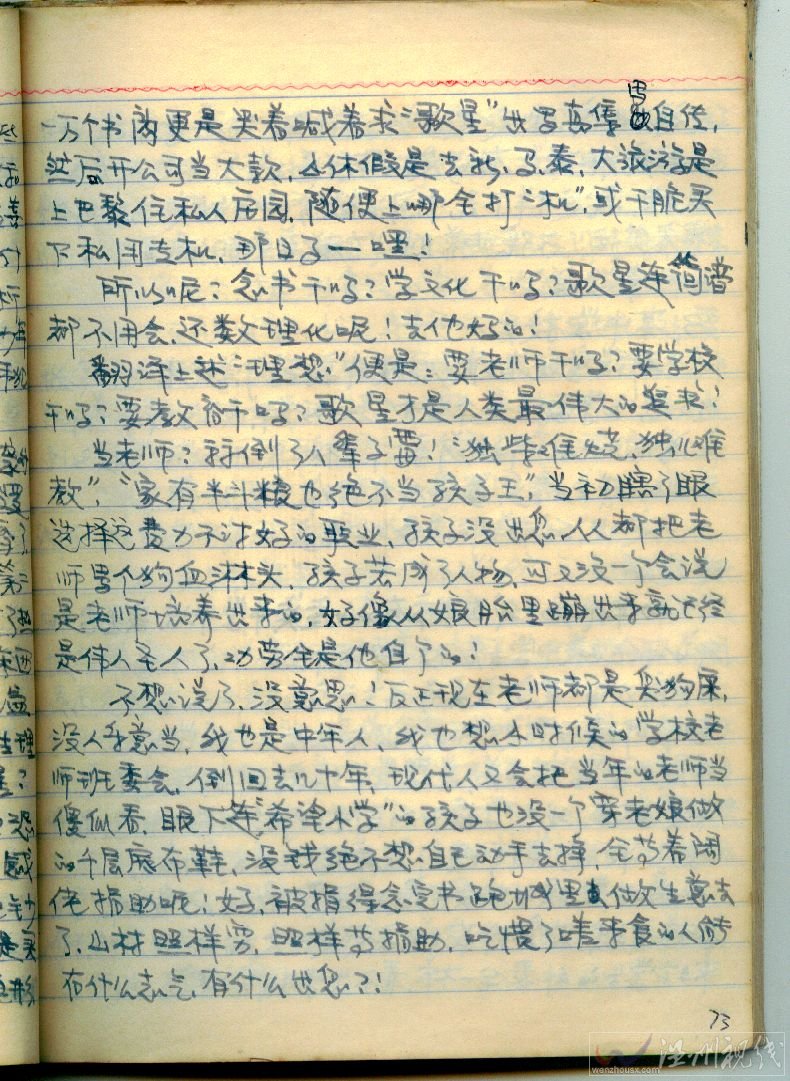 一万个书商更是哭着喊着求“歌星”出写真集出自传，
然后开公司当大款，小休假是去新、马、泰，大旅游是
上巴黎住私人庄园，随便上哪全打“机”，或干脆买
下私用专机，那日子——嘿！
所以呢？念书干吗？学文化干吗？歌星连简谱
都不用会，还数理化呢！去他妈的！
翻译上述“理想”便是：要老师干吗？要学校
干吗？要教育干吗？歌星才是人类最伟大的追求！
当老师？算倒了八辈子霉！“独柴难烧，独儿难
教”，“家有半斗粮也绝不当孩子王”，当初瞎了眼
选择这费力不讨好的职业，孩子没出息，人人都把老
师骂个狗血淋头，孩子若成了人物，可又没一个会说
是老师培养出来的，好像从娘胎里蹦出来就已经
是伟人圣人了，功劳全是他自个的！
不想说了，没意思！反正现在老师都是臭狗屎，
没人愿意当，我也是中年人，我也想小时候的学校老
师班委会，倒回去几十年，现代人又会把当年的老师当
傻似看，眼下连“希望小学”的孩子也没一个穿老娘做
的千层底布鞋，没钱绝不想自己动手去挣，全等着阔
佬捐助呢！好，被捐得念完书跑城里去做生意去
了，山村照样穷，照样等捐助，吃惯了嗟来食的人能
有什么志气，有什么出息？！
73
温州视线
wenzhousx.com